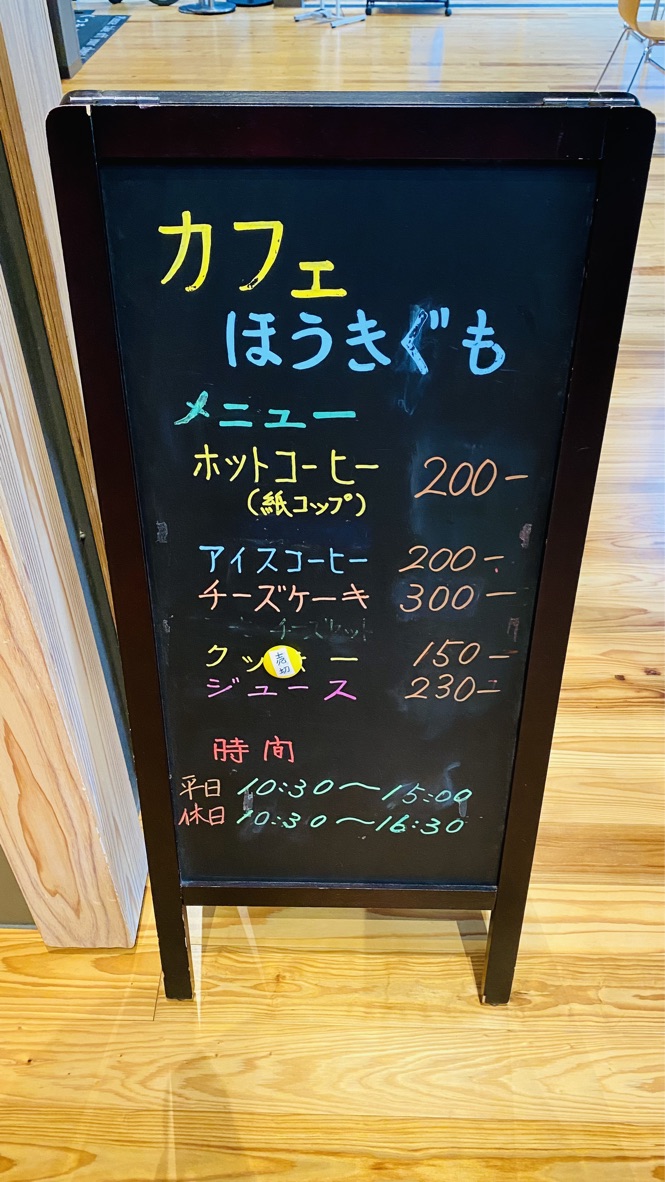 カフェ
ほうきぐも
メニュー
ホットコーヒー 200-
(紙コップ)
アイスコーヒー 200-
チーズケーキ 300-
クッキー 150-
売切
ジュース 230-
時間
平日 10:30〜15:00
休日 10:30〜16:30